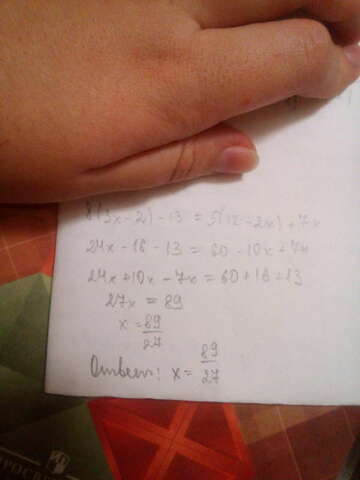 8(3x-2)-13=5(12-2x)+7x
24x-16-13=60-10x+7x
24x+10x-7x=60+16+13
27x=89
x=89/27
Ответ: x=89/27